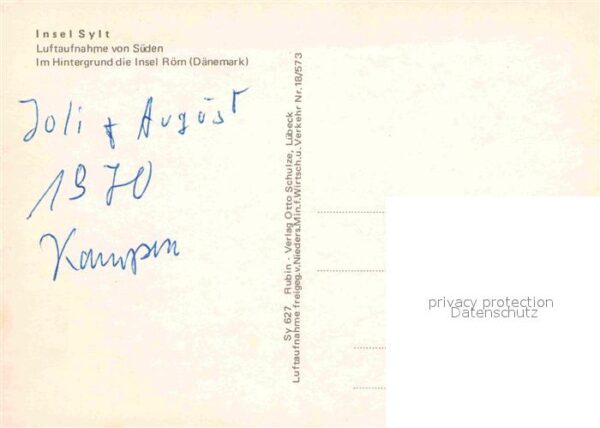 Insel Sylt
Luftaufnahme von Süden
Im Hintergrund die Insel Röm (Dänemark)
Joli + August
1970
Kampen
Sy 627 Rubin - Verlag Otto Schulze, Lübeck
Luftaufnahme freigeg.v.Nieders.Min.f.Wirtsch.u.Verkehr Nr.18/573
privacy protection
Datenschutz